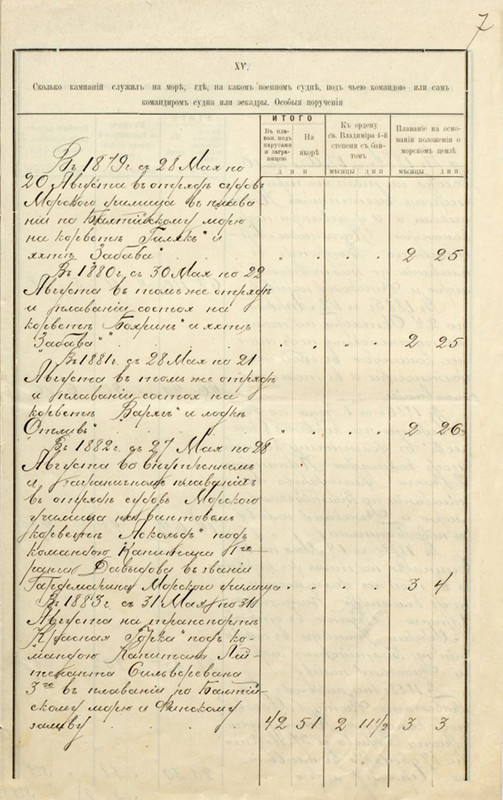 7
XV.
Сколько кампаній служилъ на морѣ, гдѣ, на какомъ военномъ суднѣ, подъ чьею командою или самъ
командиромъ судна или эскадры. Особыя порученія
ИТОГО
Въ пла-
ван. подъ
парусами
и загра-
ницею
На
якорѣ
Къ ордену
св. Владиміра 4-й
степени съ бан-
томъ
Плаваніе на осно-
ваніи положенія о
морскомъ цензѣ
дни
мѣсяцы дни
мѣсяцы дни
Въ 1879г. съ 28 Мая по
20 Августа въ отрядѣ судовъ
Морского училища въ плава
ніи по Балтійскому морю
на корветѣ „Гилякъ" и
яхтѣ „Забава" 2 25
Въ 1880г. съ 30 Мая по 22
Августа въ томъ же отрядѣ
и плаваніи состоя на
корветѣ „Бояринъ" и яхтѣ
„Забава" 2 25
Въ 1881г. съ 28 Мая по 21
Августа въ томъ же отрядѣ
и плаваніи состоя на
корветѣ „Варягъ" и лодкѣ
„Отливъ" 2 26
Въ 1882г. съ 27 Мая по 28
Августа во внутреннемъ
и заграничномъ плаваніяхъ
въ отрядѣ судовъ Морского
училища на винтовомъ
корветѣ „Аскольдъ" подъ
командою Капитана 1го
ранга Давыдова въ званіи
Гардемарина Морского училища 3 4
Въ 1883г. съ 31 Мая по 31
Августа на транспортѣ
„Красная Горка" подъ ко-
мандою Капитанъ Лей-
тенанта Сильверсвана
3го въ плаваніи по Балтій-
скому морю и Финскому
заливу 42 51 2 11 1/2 3 3